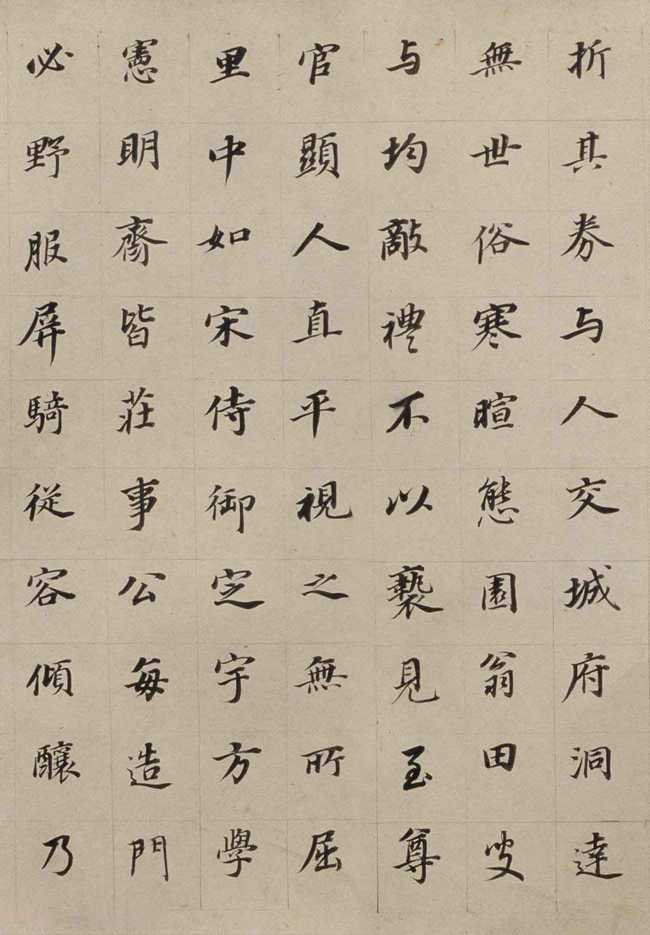 折其券与人交城府洞達
無世俗寒暄態園翁田叟
与均敵禮不以褻見至尊
官顯人直平視之無所屈
里中如宋侍御定宇方學
憲明齋皆莊事公每造門
必野服屏騎從容傾釀乃